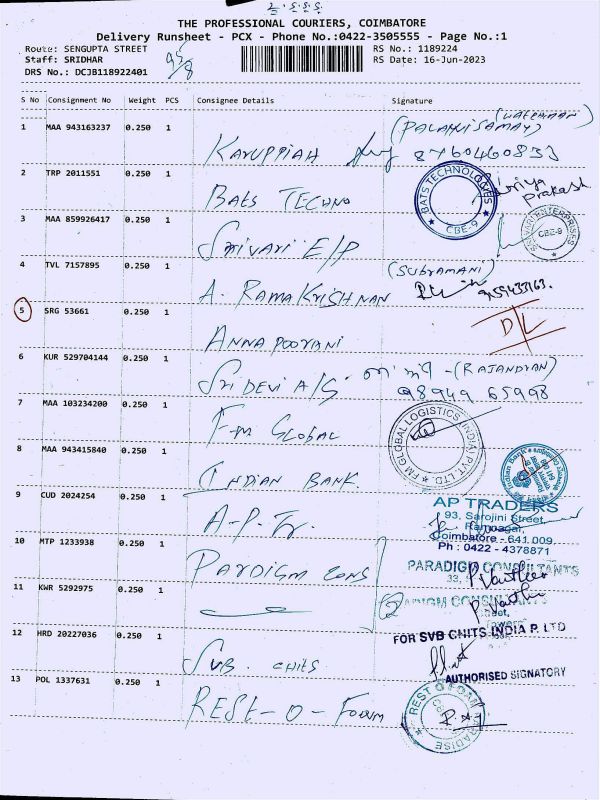 THE PROFESSIONAL COURIERS, COIMBATORE
Delivery Runsheet - PCX - Phone No.:0422-3505555 - Page No.:1
Route: SENGUPTA STREET
RS No.: 1189224
Staff: SRIDHAR
RS Date: 16-Jun-2023
DRS No.: DCJB118922401
S No Consignment No Weight PCS Consignee Details Signature
1 MAA 943163237 0.250 1 KARUPPIAH (PALANISAMAY) (WATCHMAN) 8760460833
2 TRP 2011551 0.250 1 BATS TECHNO BATS TECHNOLOGIES CBE-9 Priya Prakash
3 MAA 859926417 0.250 1 Srivari E/P SRIVARI ENTERPRISES CBE-9
4 TVL 7157895 0.250 1 A. RAMAKRISHNAN (SUBRAMANI)
5 SRG 53661 0.250 1 ANNAPOORANI D/L
6 KUR 529704144 0.250 1 SRI DEVI A/G (RAJANDRAN) 98949 65998
7 MAA 103234200 0.250 1 FM GLOBAL FM GLOBAL LOGISTICS (INDIA) PVT. LTD.
8 MAA 943415840 0.250 1 INDIAN BANK Indian Bank
9 CUD 2024254 0.250 1 A.P.Tr. AP TRADERS
93, Sarojini Street,
Ramnagar,
Coimbatore - 641 009.
Ph : 0422 - 4378871
10 MTP 1233938 0.250 1 PARDIGM CONS PARADIGM CONSULTANTS
33,
11 KWR 5292975 0.250 1 PARADIGM CONSULTANTS
12 HRD 20227036 0.250 1 SVB. CHITS FOR SVB CHITS INDIA P. LTD
AUTHORISED SIGNATORY
13 POL 1337631 0.250 1 REST-O-Foam REST O FOAM PARADISE